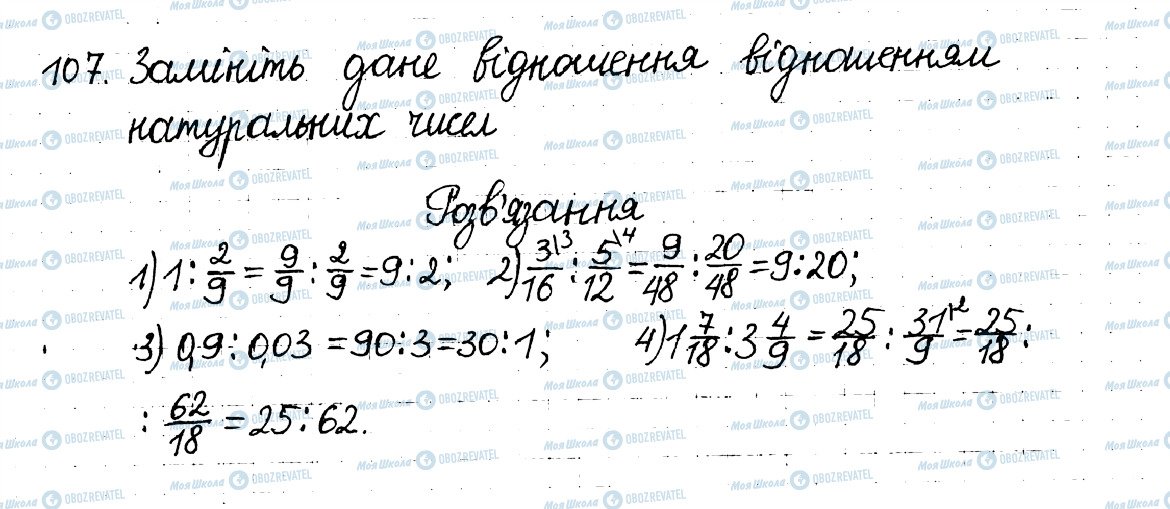 107. Замініть дане відношення відношенням
натуральних чисел
Розв'язання
1) 1 : 2/9 = 9/9 : 2/9 = 9 : 2; 2) 3\3/16 : 5\4/12 = 9/48 : 20/48 = 9 : 20;
3) 0,9 : 0,03 = 90 : 3 = 30 : 1; 4) 1 7/18 : 3 4/9 = 25/18 : 31\2/9 = 25/18 :
: 62/18 = 25 : 62.